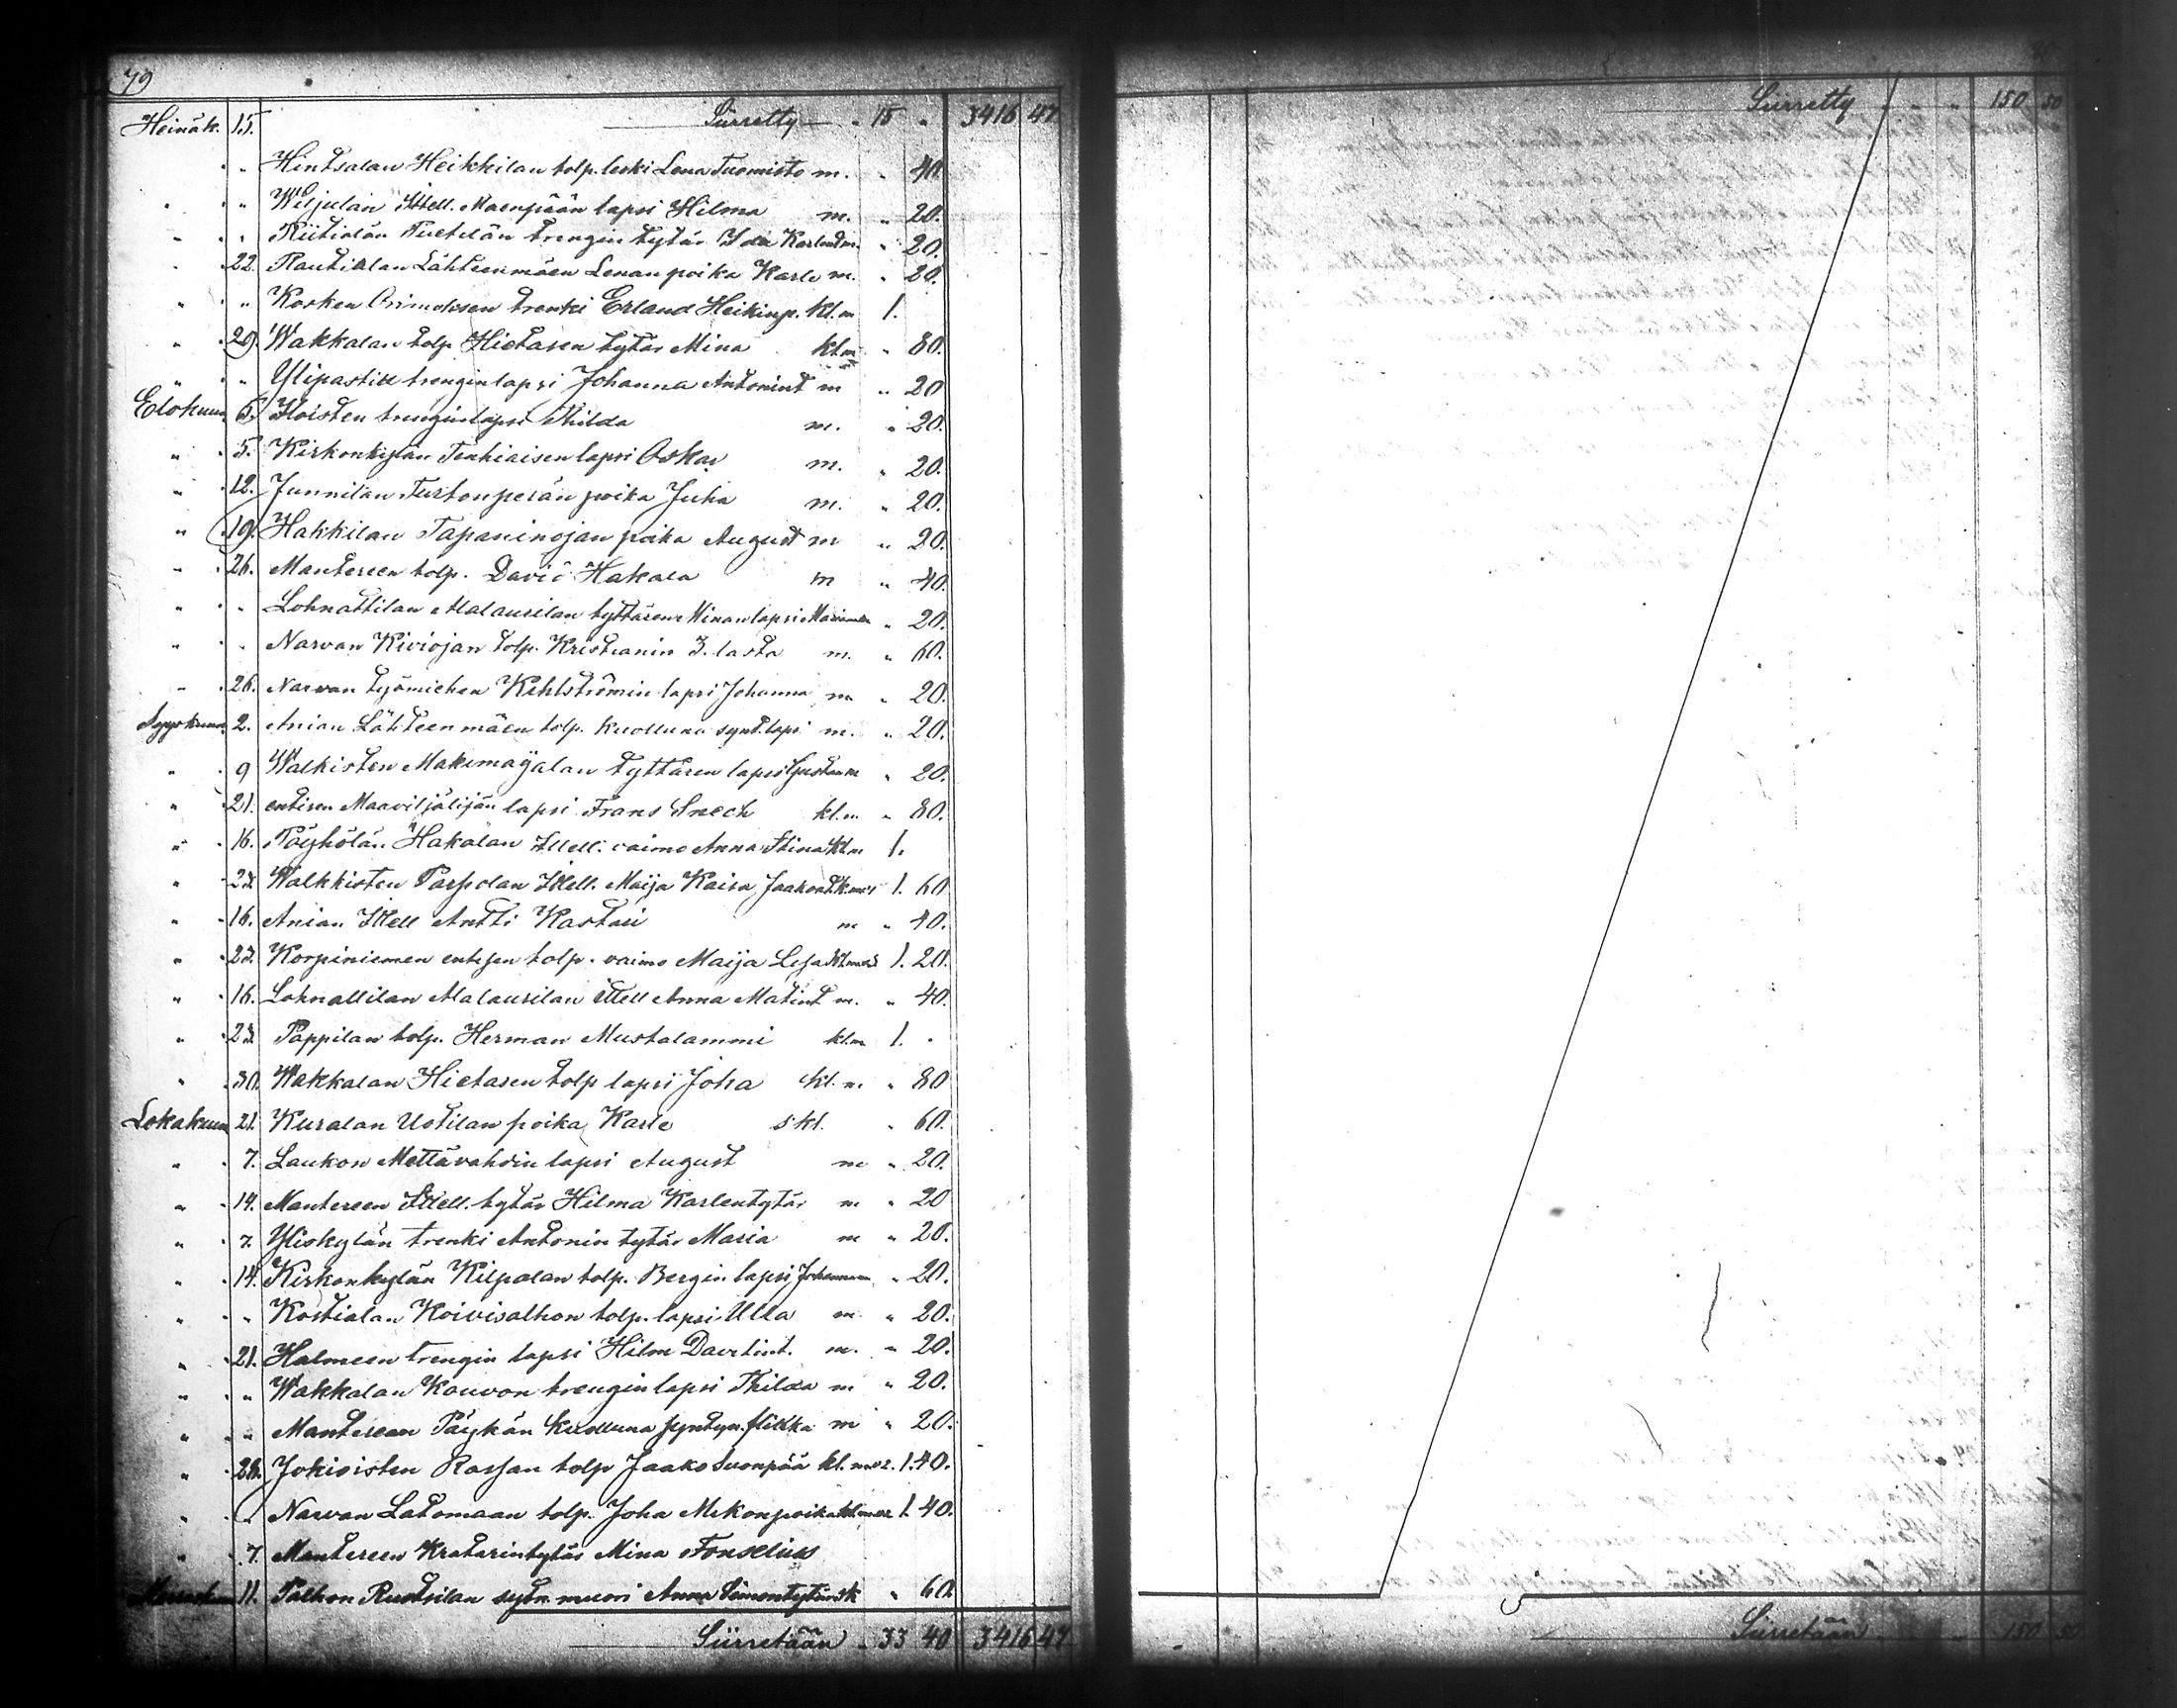 79
Heinäk. 15. Siirretty " 15 " 3416 47
" " Hintsalan Heikkilan tolp. leski Lena Tuomisto m. " 40.
" " Wiljulan Ittell. Maenpään lapsi Hilma m. " 20.
" " trengin tytär Ida m. " 20.
" 22. Rautialan Lähteenmäen Lenan poika Karle m. " 20.
" " Kosken trenki Erland Heikinp. kl. m 1.
" 29. Wakkalan tolp. Hietasen tytär Mina kl. m " 80.
" " Ylipastin trengin lapsi Johanna Antonint m " 20
Elokuun 5. Hoisten trengin lapsi Thilda m. " 20.
" 5. Kirkonkylän lapsi Oskar m. " 20.
" 12. Junnilan Turtonperän poika Juha m. " 20.
" 19. Hakkilan Tapaninojan poika August m " 20.
" 26. Mantereen tolp. David Hakala m " 40.
" " Lohnattilan Alalaurilan tyttären Minan lapsi " 20.
" " Narvan Kiviojan tolp. Kristianin 3. lasta m. " 60.
" 26. Narvan työmiehen Kihlströmin lapsi Johanna m " 20.
Syyskuun 2. Anian Lähteenmäen tolp. kuolluna synt. lapsi m. " 20.
" 9 Walkisten Makimaijalan tyttären lapsi m " 20.
" 21. entisen Maaviljälijän lapsi Frans Snech kl. m " 80.
" 16. Pöyhölän Hakalan Ittell. vaimo Anna Stina kl. m 1.
" 23. Walkkisten Parpolan Ittell. Maija Kaisa 1. 60
" 16. Anian Ittell Antti Kastari m " 40.
" 23. Korpiniemen entisen tolp. vaimo Maija Lisa 1. 20.
" 16. Lohnattilan Alalaurilan Ittell Anna Matint m. " 40.
" 23. Pappilan tolp. Herman Mustalammi kl. m 1. "
" 30. Wakkalan Hietasen tolp lapsi Joha kl. m. " 80
Lokakuun 21. Kuralan Uotilan poika Karle s kl. " 60.
" 7. Laukon Mettävahdin lapsi August m " 20.
" 14. Mantereen Ittell. tytär Hilma Karlentytär m " 20
" 7. Yliskylän trenki Antonin tytär Maria m " 20.
" 14. Kirkonkylän Kilpalan tolp. Bergin lapsi Johanna m " 20.
" " Kostialan Koivisalhon tolp. lapsi Ulla m " 20.
" 21. Halmeen trengin lapsi Hilm Davetint. m. " 20.
" " Wakkalan Kouvon trengin lapsi Thilda m " 20.
" " Mantereen Päykän kuolluna syntyn. flikka m " 20.
" 28. Jokioisten Rassan tolp Jaako Suonpää kl. 1. 40.
" " Narvan Latomaan tolp. Joha Mikonpoika 1. 40.
" 7. Mantereen Kratarintytär Mina Fonselius
Marraskuun 11. Palhon Ruotsilan muori Anna Simontytär " 60.
Siirretään " 33 40 3416 47
Siirretty " " " 150 50
Siirretään " " 150 50